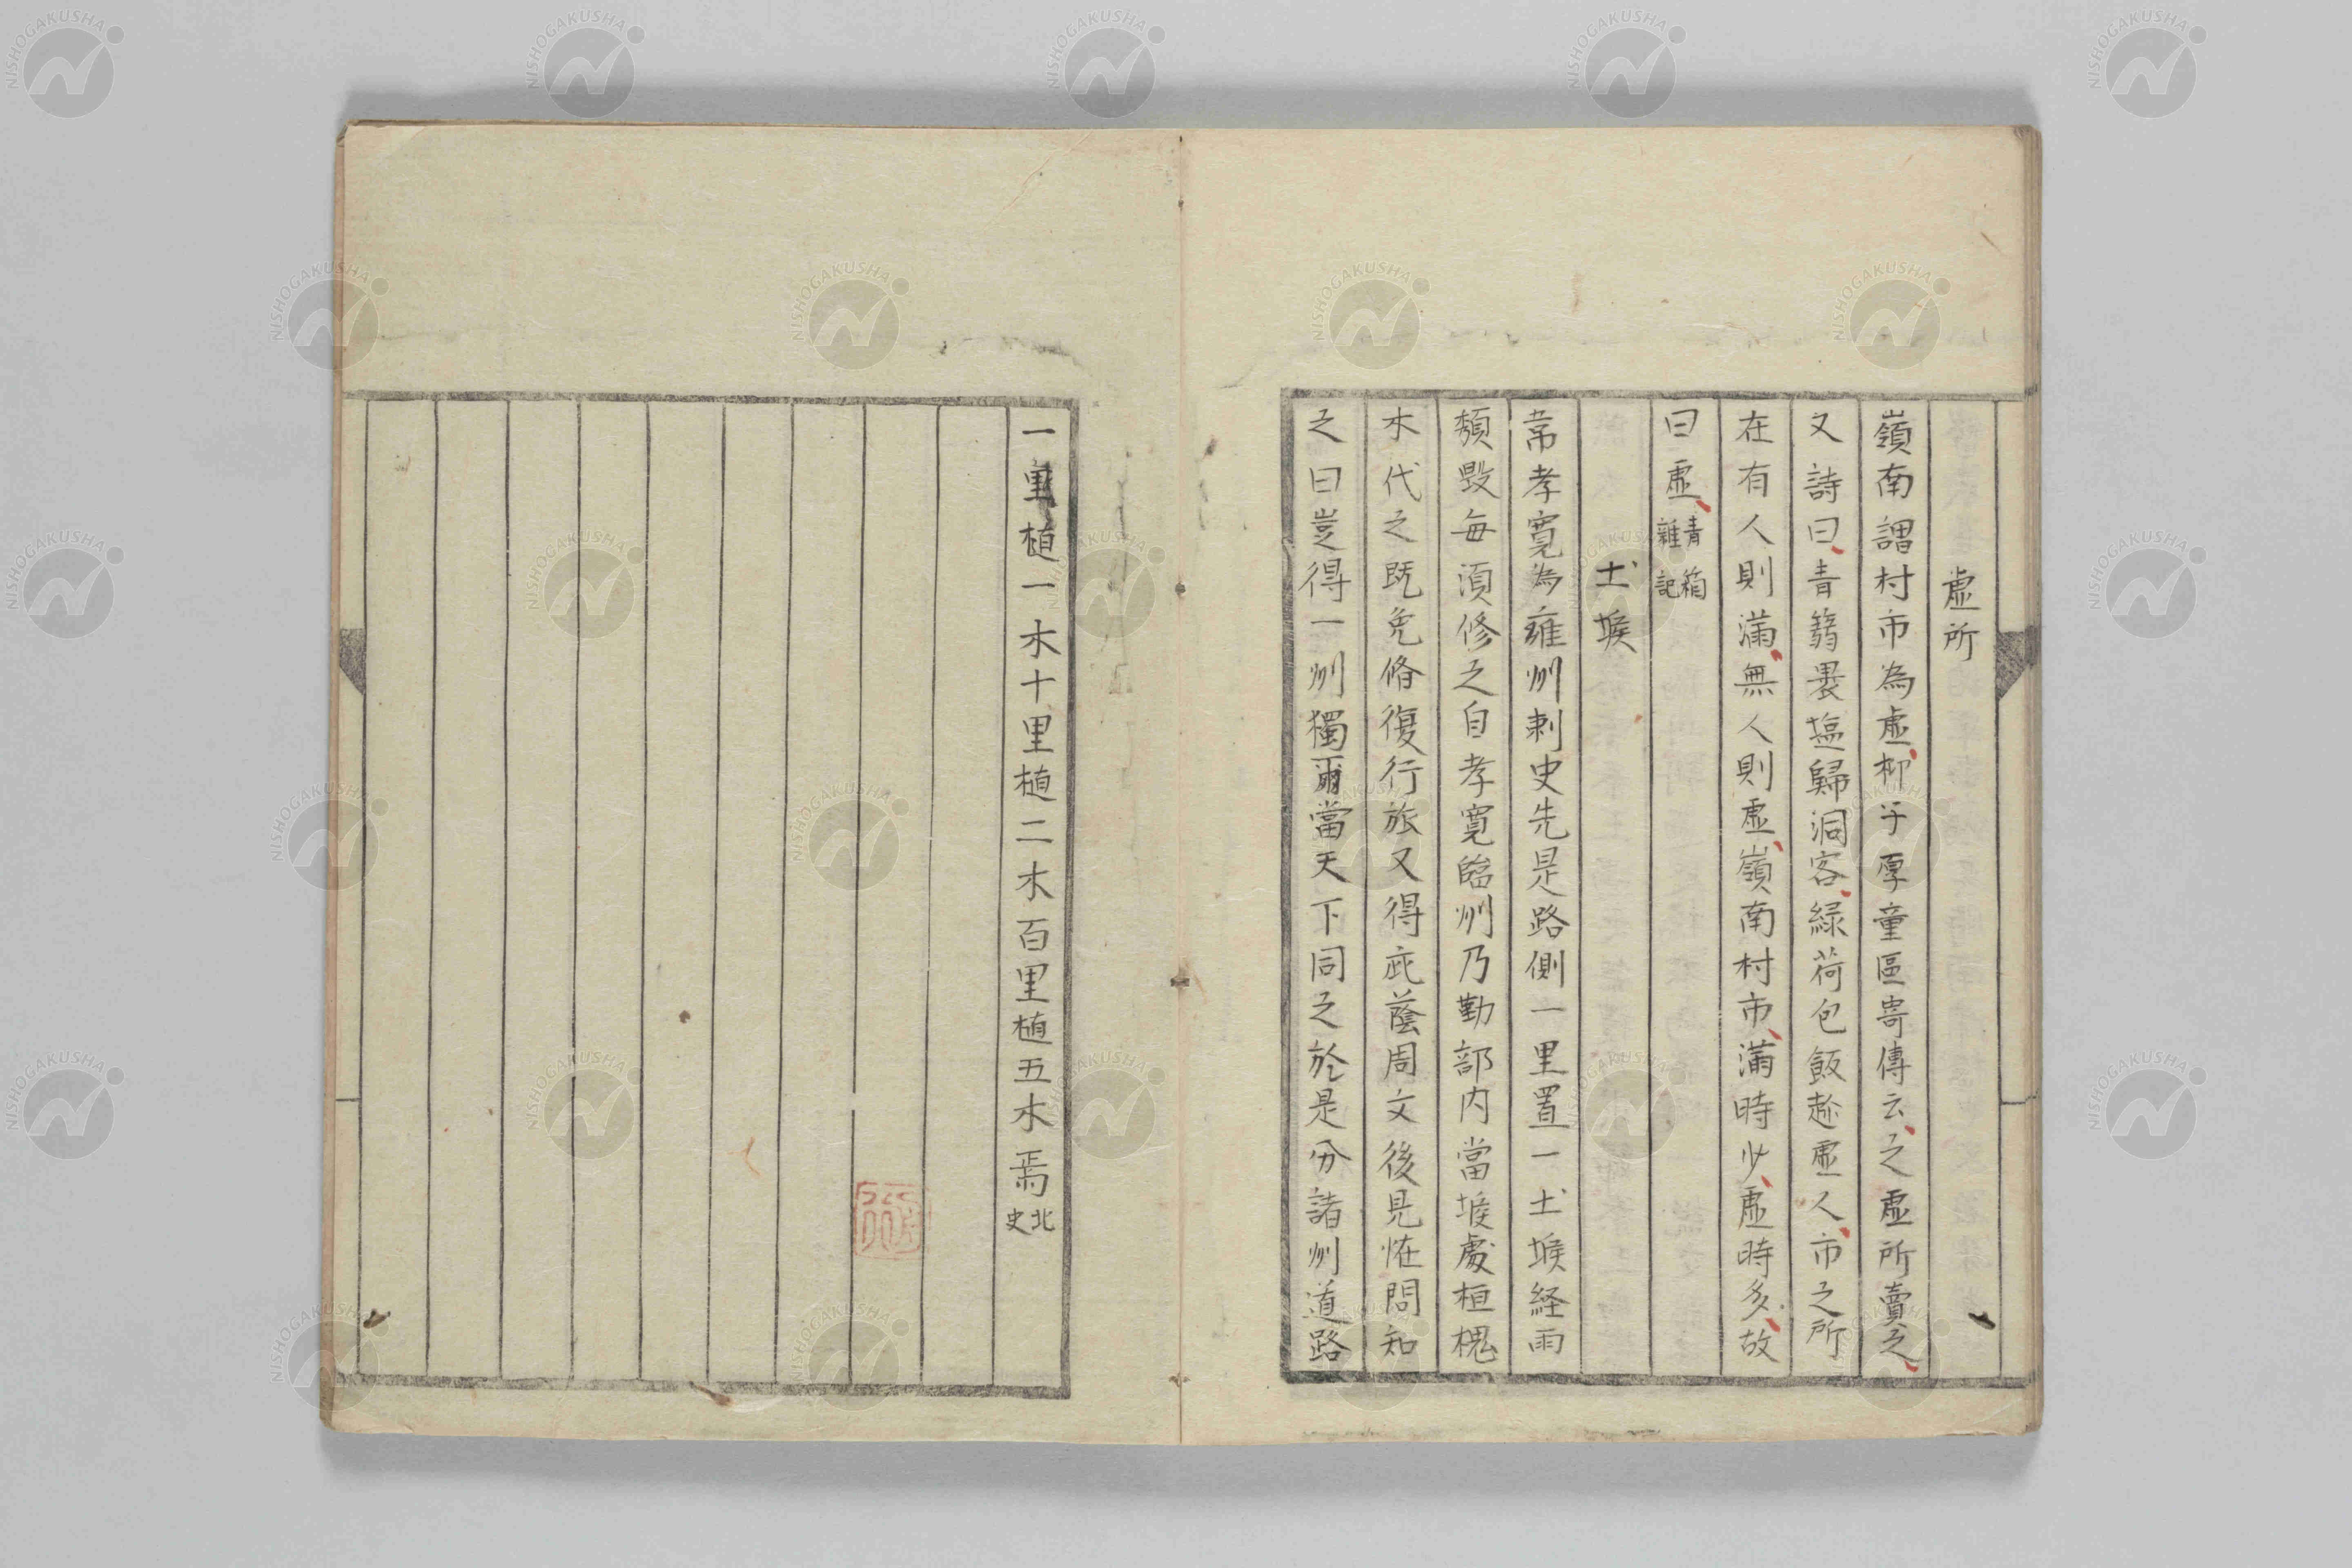 虚所
嶺南謂村市為虚、柳子厚童區寄傳云、之虚所賣之、
又詩曰、青篛裹塩歸洞客、緑荷包飯趁虚人、市之所
在有人則滿、無人則虚、嶺南村市、滿時少、虚時多、故
曰虚、青箱雜記
土堠
韋孝寛為雍州刺史先是路側一里置一土堠経雨
頽毀毎須修之自孝寛臨州乃勤部内當堠處植槐
木代之既免脩復行旅又得庇蔭周文後見恠問知
之曰豈得一州獨爾當天下同之於是分諸州道路
一里植一木十里植二木百里植五木焉北史
NISHOGAKUSHA